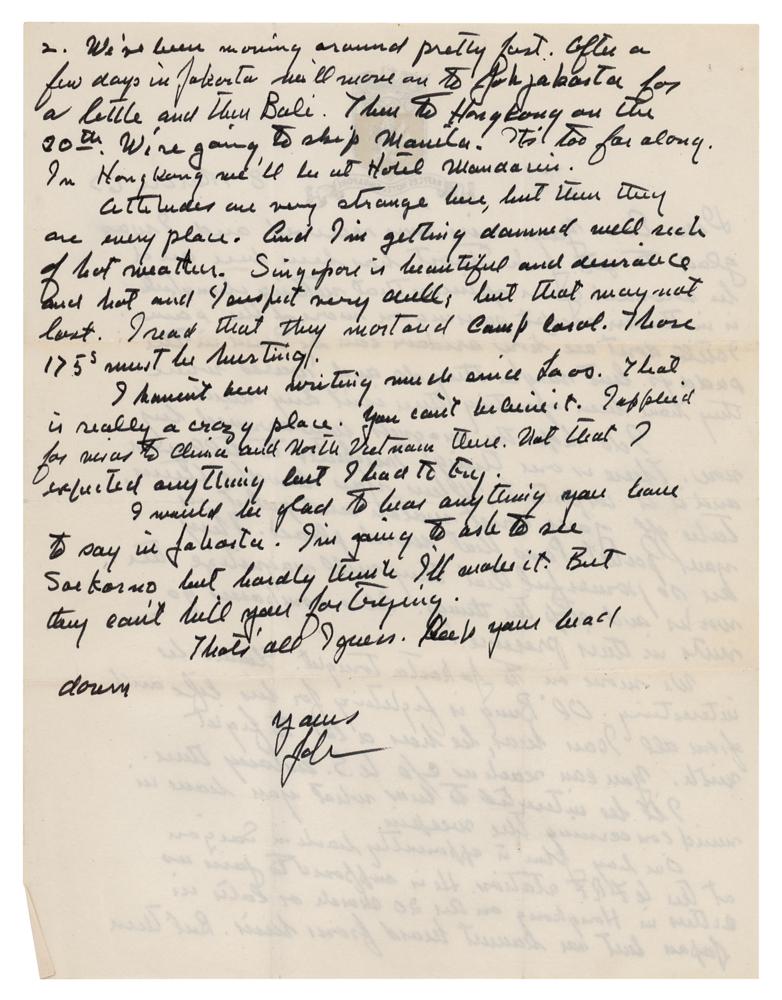 2. We've been moving around pretty fast. After a
few days in Jakarta we'll move on to Johjakarta for
a little and then Bali. Then to Hongkong on the
20th. We're going to skip Manila. It's too far along.
In Hongkong we'll be at Hotel Mandarin.
Attitudes are very strange here, but then they
are every place. And I'm getting damned well sick
of hot weather. Singapore is beautiful and desirable
and hot and I suspect very dull; but that may not
last. I read that they mortared Camp Carol. Those
175s must be hurting.
I haven't been writing much since Laos. That
is really a crazy place. You can't believe it. I applied
for visas to China and North Vietnam there. Not that I
expected anything but I had to try.
I would be glad to hear anything you have
to say in Jakarta. I'm going to ask to see
Soekarno but hardly think I'll make it. But
they can't kill you for trying.
That's all I guess. Keep your head
down
yours
John